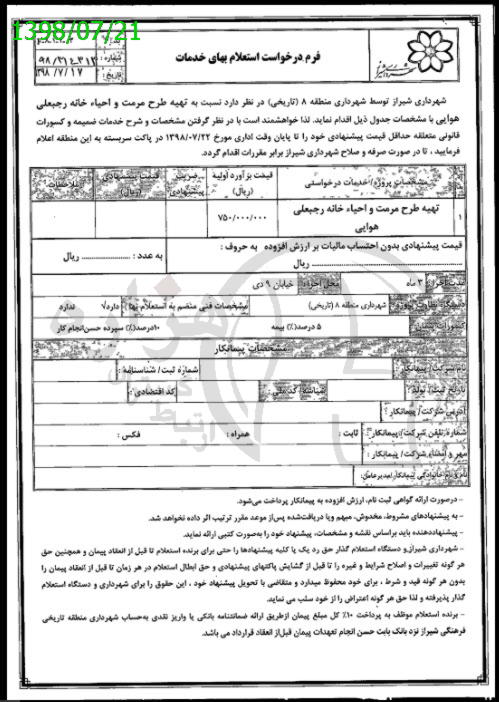 1398/07/21
شماره: ۹۸/۲۱۴۳۱۲
تاریخ: ۱۳۹۸/۰۷/۱۷
فرم درخواست استعلام بهای خدمات
شهرداری شیراز توسط شهرداری منطقه ۸ (تاریخی) در نظر دارد نسبت به تهیه طرح مرمت و احیاء خانه رجبعلی
هوایی با مشخصات جدول ذیل اقدام نماید. لذا خواهشمند است با در نظر گرفتن مشخصات و شرح خدمات ضمیمه و کسورات
قانونی متعلقه حداقل قیمت پیشنهادی خود را تا پایان وقت اداری مورخ ۱۳۹۸/۰۷/۲۲ در پاکت سربسته به این منطقه اعلام
فرمایید ، تا در صورت صرفه و صلاح شهرداری شیراز برابر مقررات اقدام گردد.
مشخصات پروژه/خدمات درخواستی قیمت برآورد اولیه (ریال) ضریب پیشنهادی قیمت پیشنهادی (ریال) ملاحظات
۱ تهیه طرح مرمت و احیاء خانه رجبعلی هوایی ۷۵۰/۰۰۰/۰۰۰
قیمت پیشنهادی بدون احتساب مالیات بر ارزش افزوده به حروف :
ریال به عدد : ریال
مدت اجرا: ۳ ماه محل اجرا: خیابان ۹ دی
شهرداری منطقه ۸ (تاریخی) مشخصات فنی منضم به استعلام بها: دارد√ ندارد
۵ درصد(٪) بیمه ۱۰درصد(٪) سپرده حسن‌انجام کار
مشخصات پیمانکار
نام شرکت/ پیمانکار: شماره ثبت/ شناسنامه :
تاریخ ثبت/ تولد: شناسه/ کد ملی: کد اقتصادی:
آدرس شرکت/ پیمانکار:
شماره تلفن شرکت/ پیمانکار: ثابت : همراه : فکس :
مهر و امضاء شرکت/ پیمانکار :
نام و نام خانوادگی پیمانکار/مدیرعامل:
- درصورت ارائه گواهی ثبت نام، ارزش افزوده به پیمانکار پرداخت می‌شود.
- به پیشنهادهای مشروط، مخدوش، مبهم ویا دریافت‌شده پس‌از موعد مقرر ترتیب اثر داده نخواهد شد.
- پیشنهاددهنده باید براساس نقشه و مشخصات، پیشنهاد خود را به‌صورت کتبی ارائه نماید.
- شهرداری شیراز و دستگاه استعلام گذار حق رد یک یا کلیه پیشنهادها را حتی برای برنده استعلام تا قبل از انعقاد پیمان و همچنین حق
هر گونه تغییرات و اصلاح شرایط و غیره را تا قبل از گشایش پاکتهای پیشنهادی و حق ابطال استعلام در هر زمان تا قبل از انعقاد پیمان را
بدون هر گونه قید و شرط ، برای خود محفوظ میدارد و متقاضی با تحویل پیشنهاد خود ، این حقوق را برای شهرداری و دستگاه استعلام
گذار پذیرفته و لذا حق هر گونه اعتراض را از خود سلب می نماید.
- برنده استعلام موظف به پرداخت ۱۰٪ کل مبلغ پیمان ازطریق ارائه ضمانتنامه بانکی یا واریز نقدی به‌حساب شهرداری منطقه تاریخی
فرهنگی شیراز نزد بانک بابت حسن انجام تعهدات پیمان قبل‌از انعقاد قرارداد می باشد.